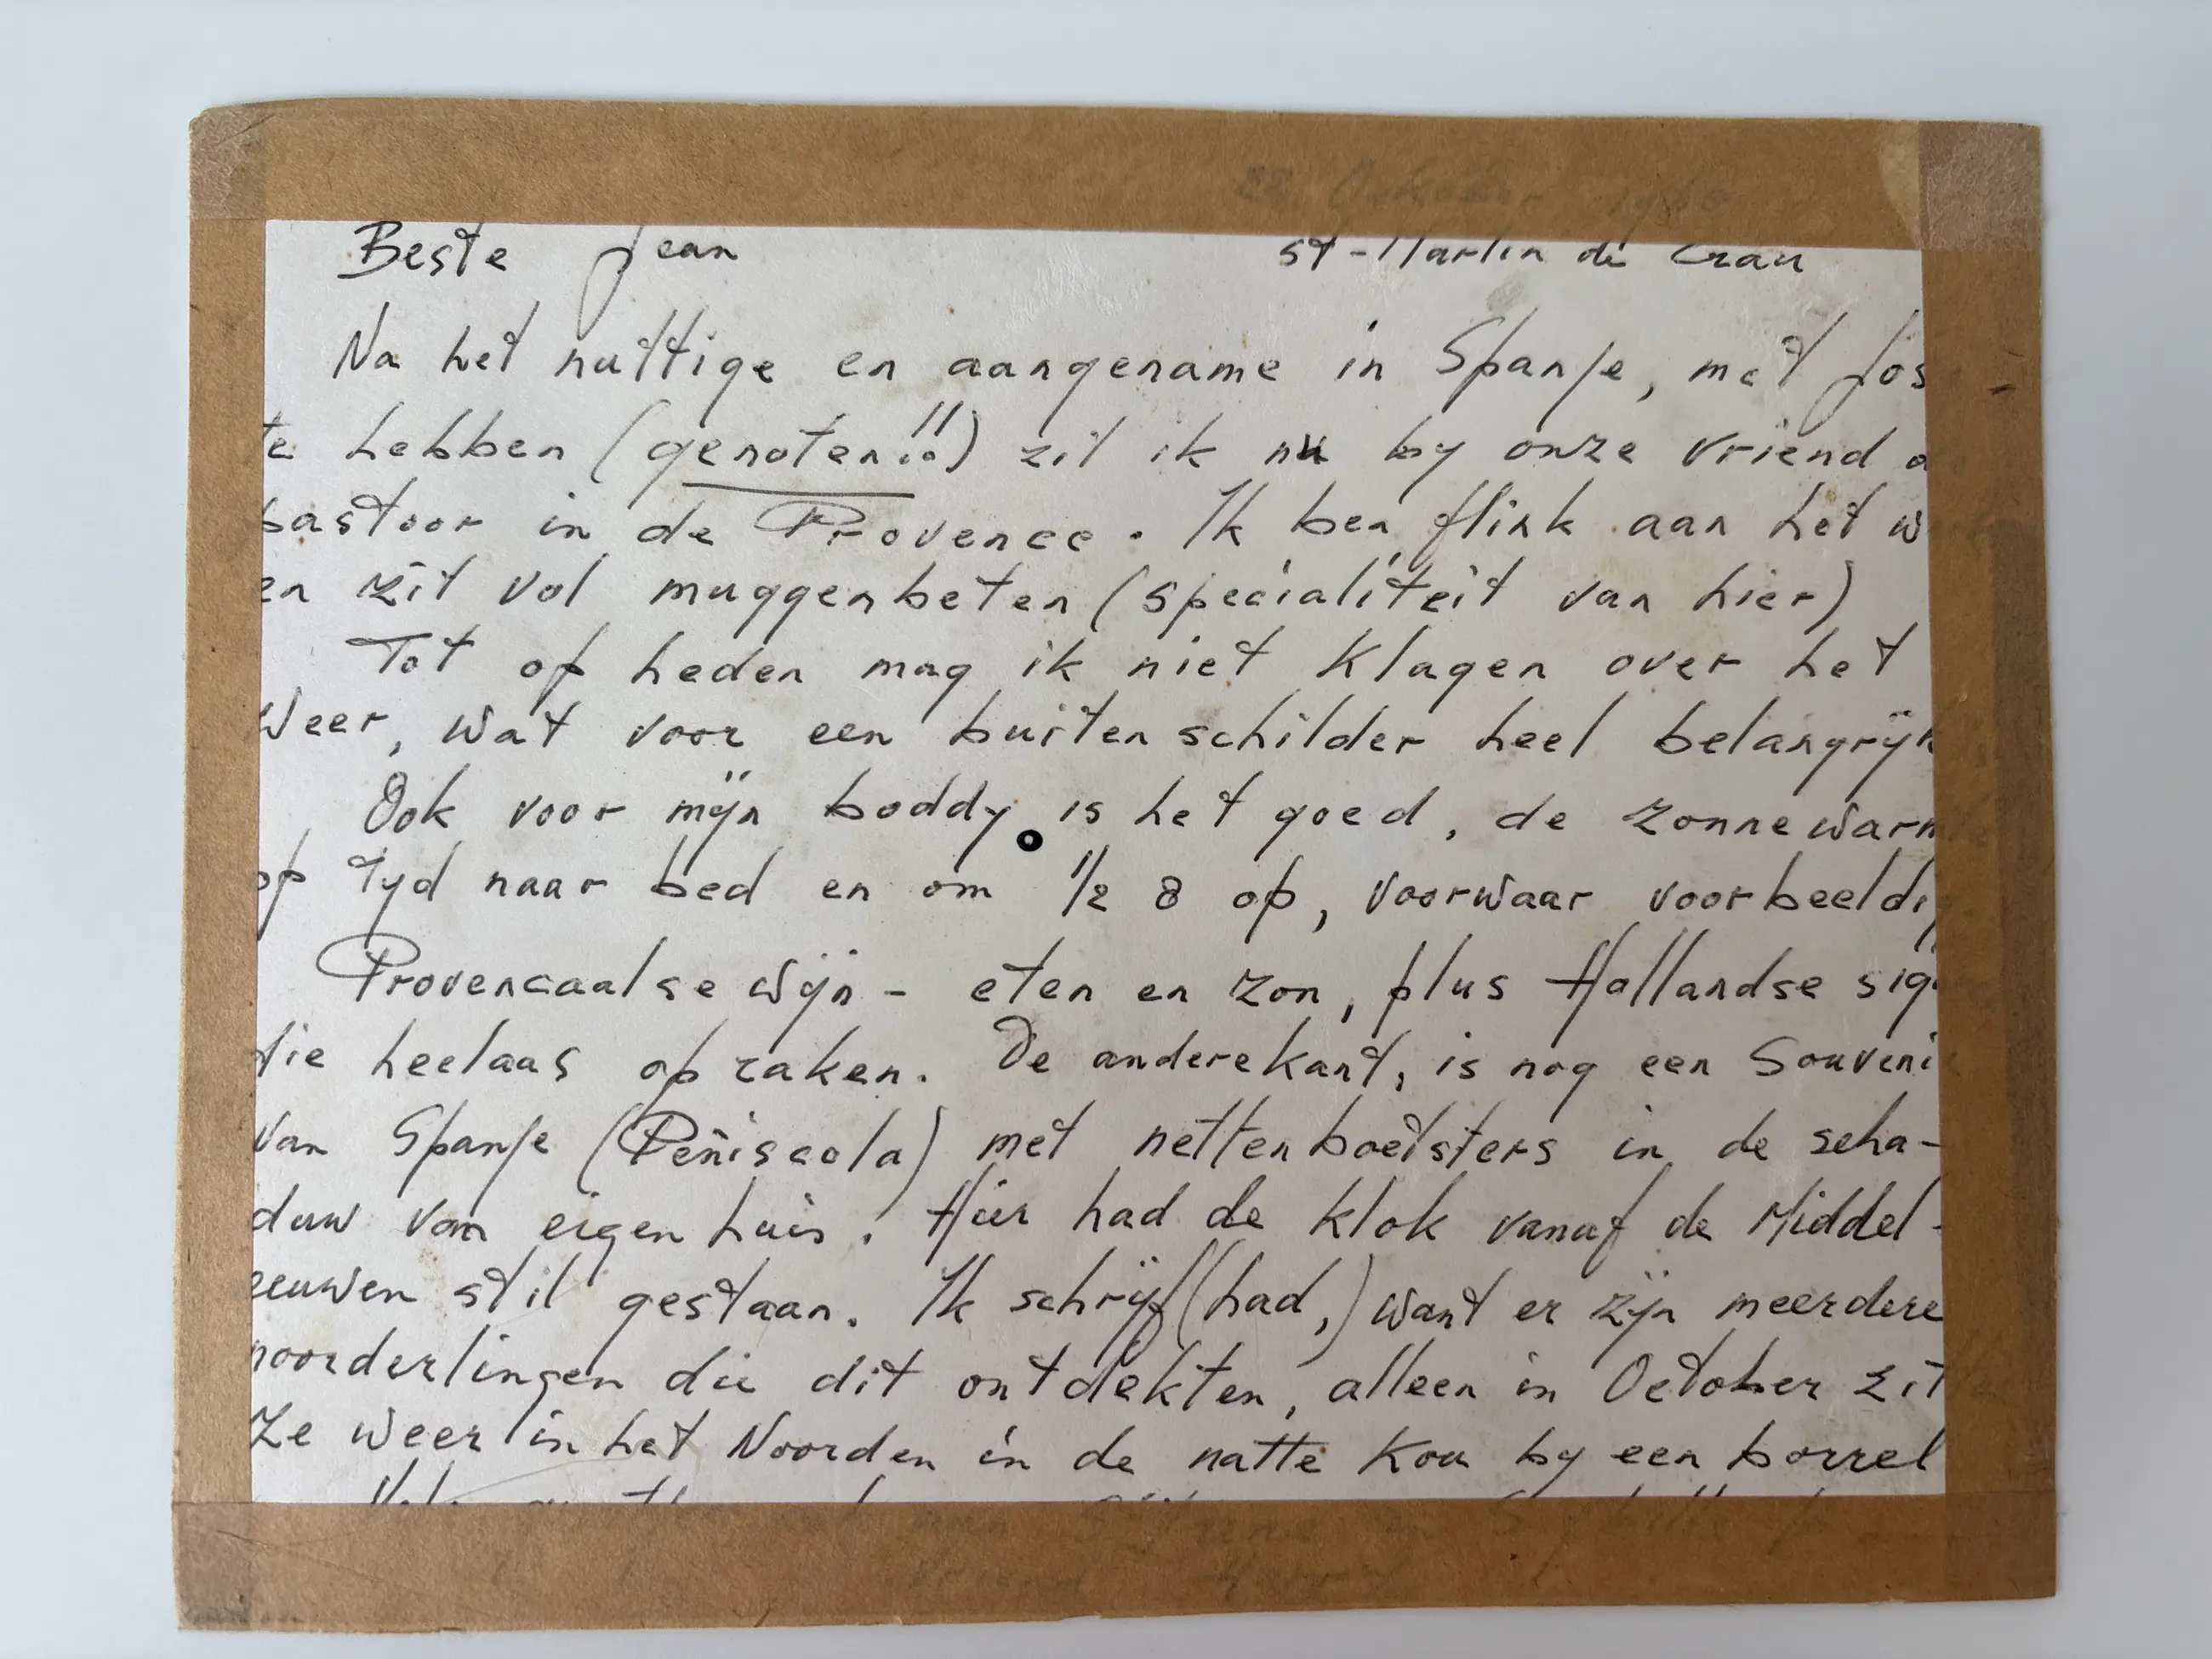 October 1960
Beste Jean St-Martin de Crau
Na het nuttige en aangename in Spanje, met Jos
te hebben (genoten!!) zit ik nu by onze vriend
pastoor in de Provence. Ik ben flink aan het w
en zit vol muggenbeten (specialiteit van hier)
Tot op heden mag ik niet klagen over het
Weer, wat voor een buitenschilder heel belangrijk
Ook voor mijn boddy is het goed, de zonnewarm
op tyd naar bed en om 1/2 8 op, voorwaar voorbeeldi
Provencaalse wijn - eten en zon, plus Hollandse sig
die heelaas op raken. De anderekant, is nog een Souveni
van Spanje (Peñiscola) met nettenboetsters in de scha-
duw van eigen huis. Hier had de klok vanaf de Middel-
eeuwen stil gestaan. Ik schrijf (had,) want er zijn meerdere
noorderlingen die dit ontdekten, alleen in October zit
Ze weer in het Noorden in de natte kou by een borrel